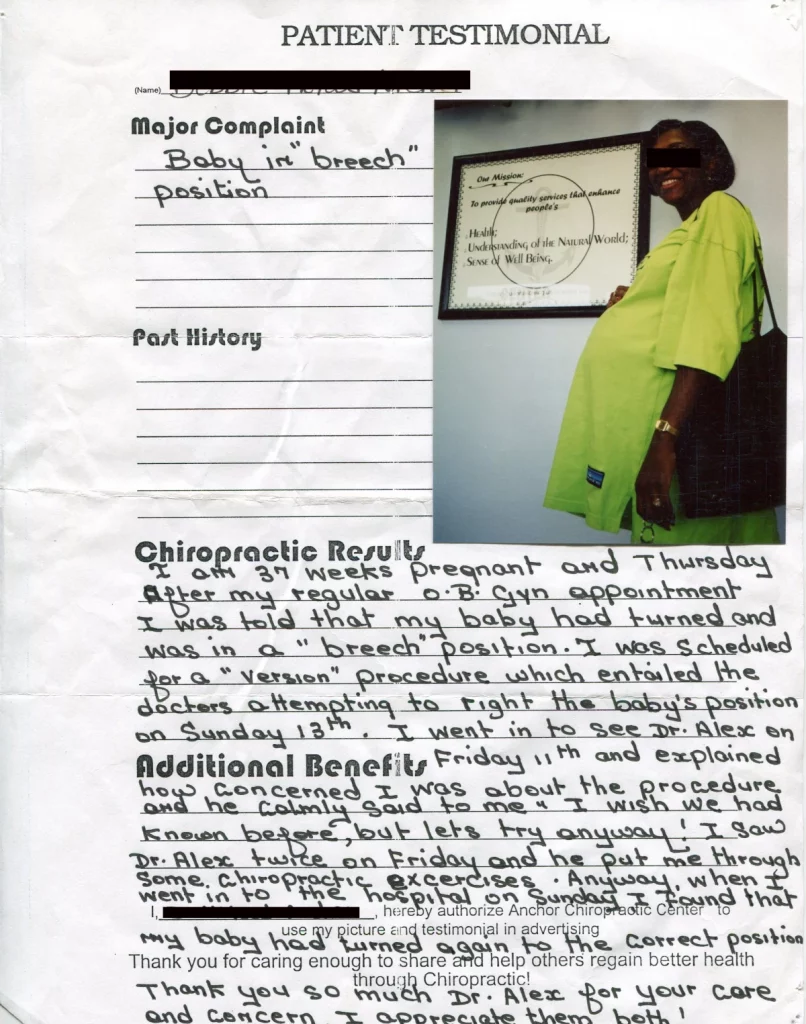 PATIENT TESTIMONIAL
(Name)
Major Complaint
Baby in "breech"
position
Our Mission:
To provide quality services that enhance
people's
Health;
Understanding of the Natural World;
Sense of Well Being.
Past History
Chiropractic Results
I am 37 weeks pregnant and Thursday
After my regular O.B. Gyn appointment
I was told that my baby had turned and
was in a "breech" position. I was scheduled
for a "version" procedure which entailed the
doctors attempting to right the baby's position
on Sunday 13th. I went in to see Dr. Alex on
Additional Benefits Friday 11th and explained
how concerned I was about the procedure
and he calmly said to me "I wish we had
known before, but lets try anyway! I saw
Dr. Alex twice on Friday and he put me through
some chiropractic excercises. Anyway, when I
went in to the hospital on Sunday I found that
I, , hereby authorize Anchor Chiropractic Center to
use my picture and testimonial in advertising
my baby had turned again to the correct position
Thank you for caring enough to share and help others regain better health
through Chiropractic!
Thank you so much Dr. Alex for your care
and concern I appreciate them both!